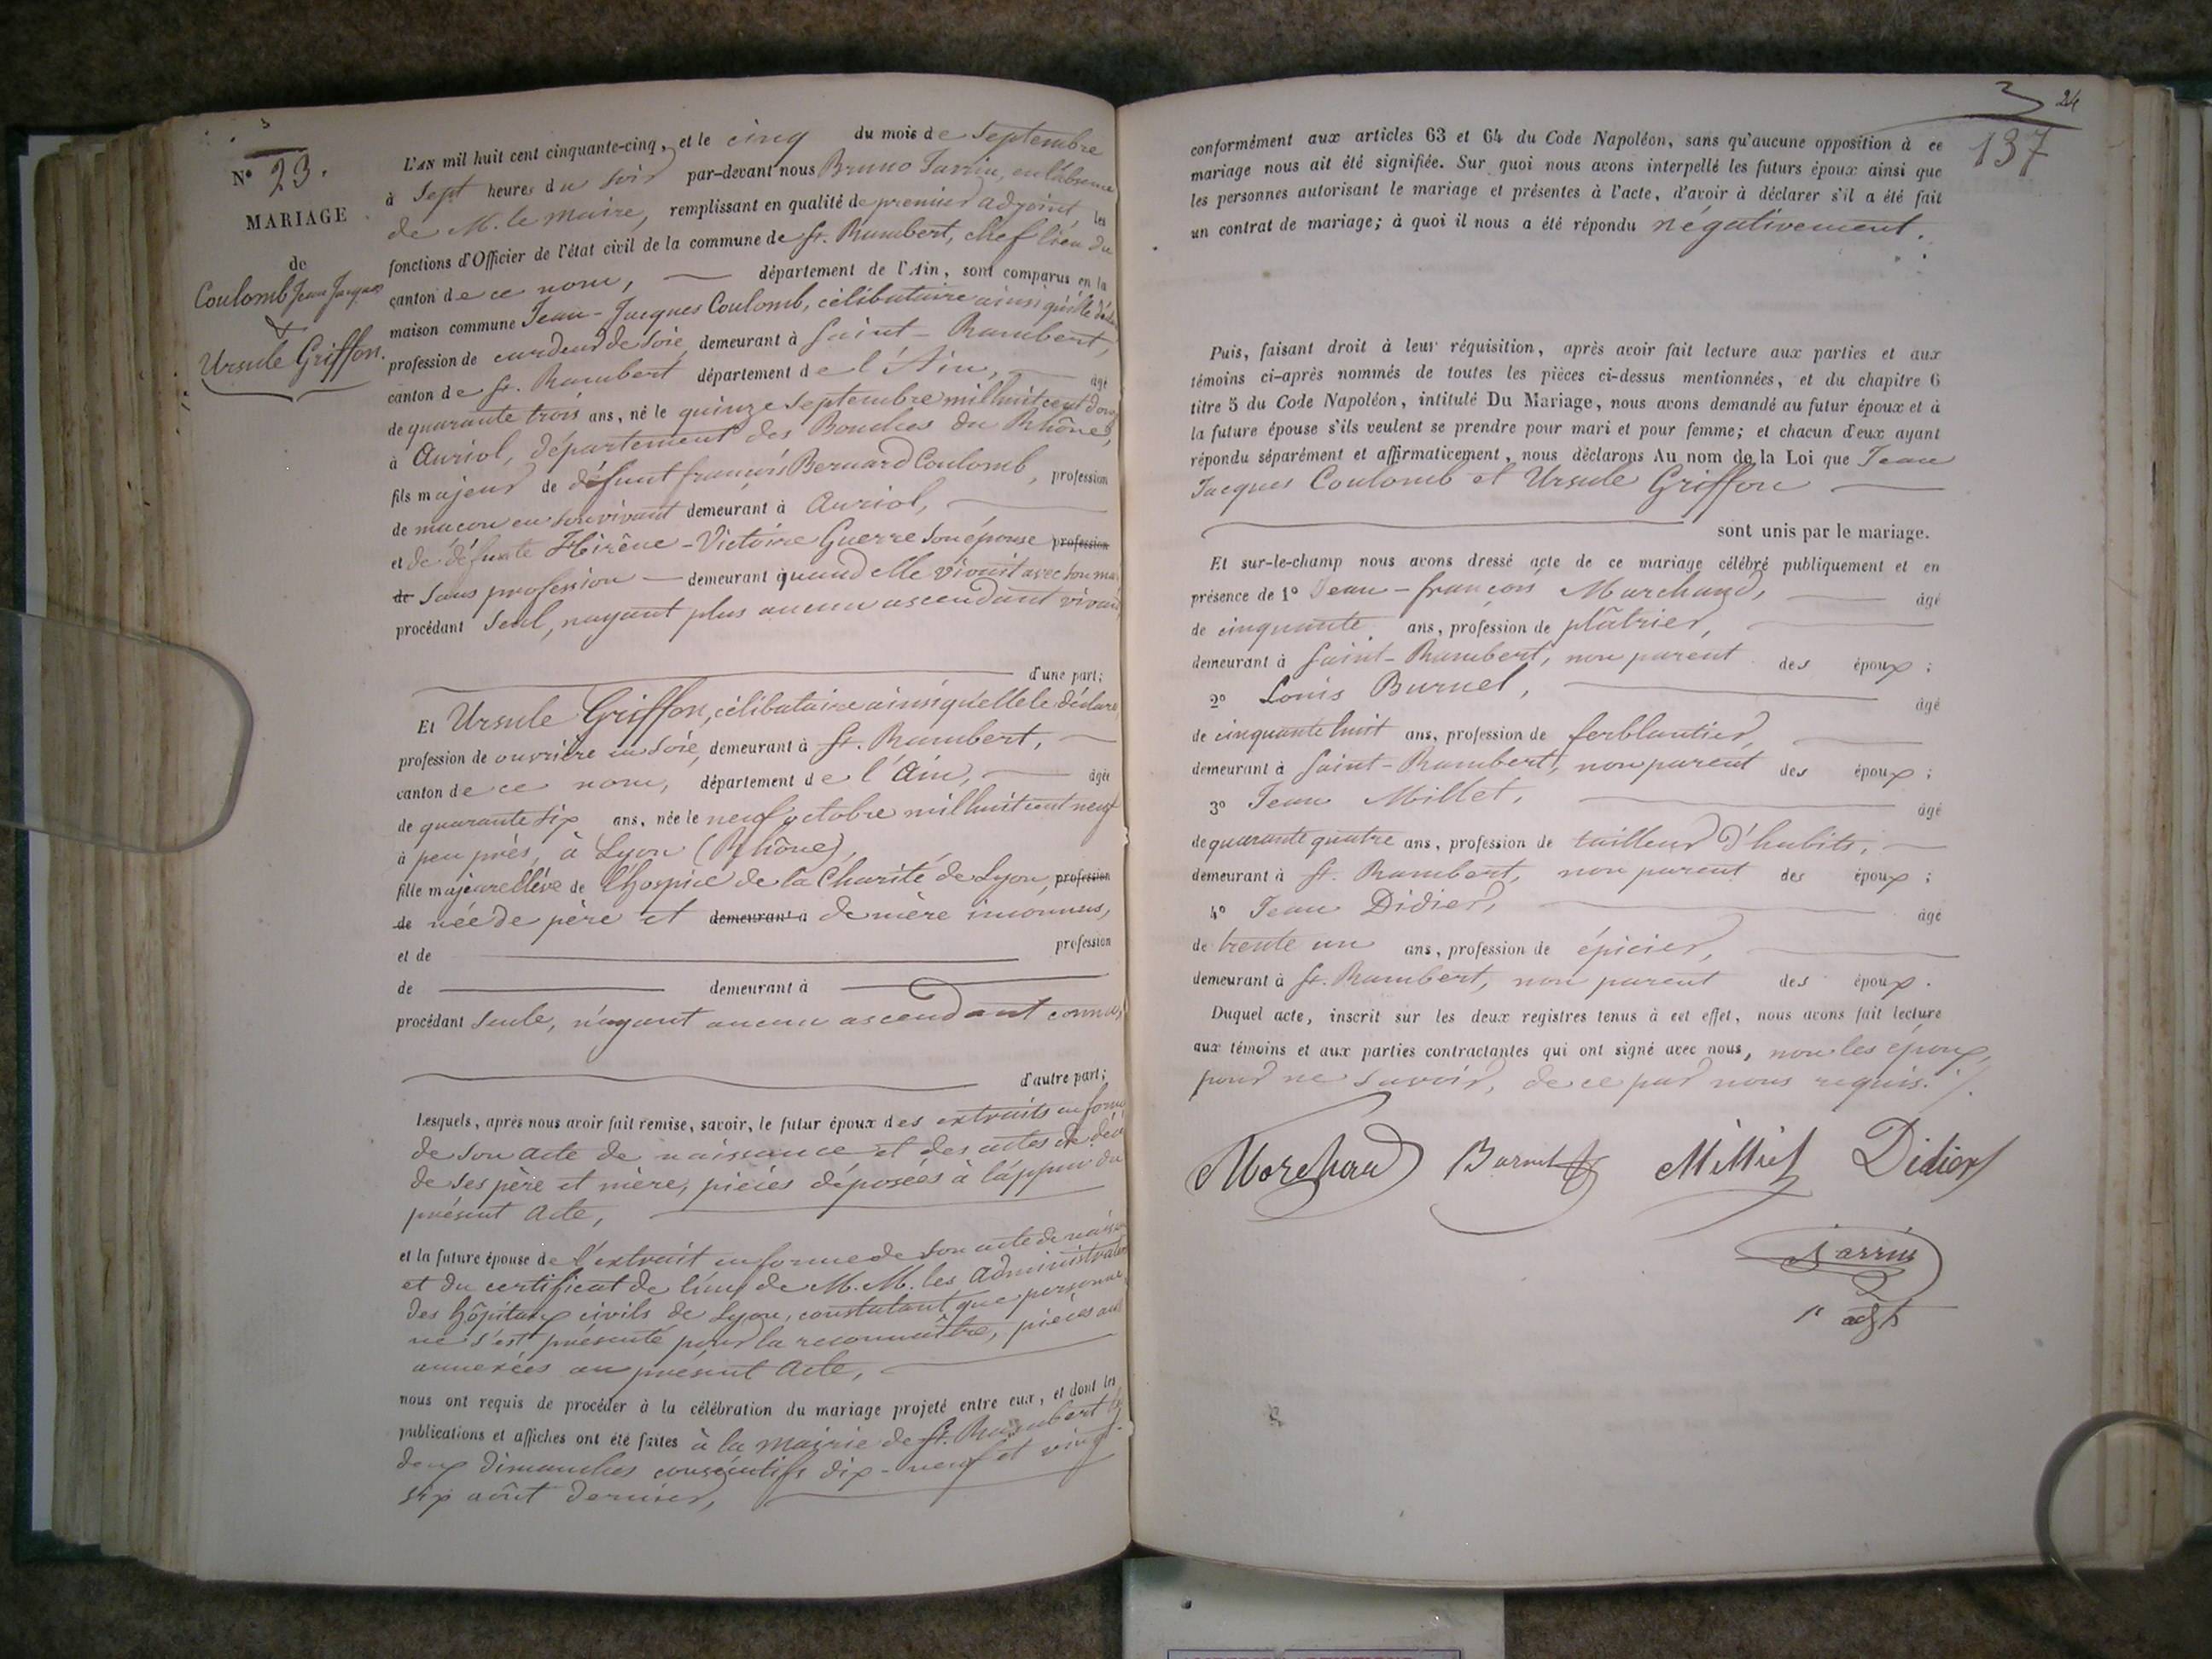 N° 23.
MARIAGE
de
Coulomb Jean Jacques
&
Ursule Griffon.
L'AN mil huit cent cinquante-cinq, et le cinq du mois de Septembre
à Sept heures du soir par-devant nous Bruno Jarrin, en l'absence
de M. le Maire, remplissant en qualité de premier adjoint, les
fonctions d'Officier de l'état civil de la commune de St. Rambert, chef lieu du
canton de ce nom, département de l'Ain, sont comparus en la
maison commune Jean-Jacques Coulomb, célibataire ainsi qu'il le
profession de cardeur de soie, demeurant à Saint-Rambert,
canton de St. Rambert département de l'Ain, âgé
de quarante trois ans, né le quinze Septembre mil huit cent
à Auriol, département des Bouches du Rhône,
fils majeur de défunt françois Bernard Coulomb, profession
de maçon en son vivant demeurant à Auriol,
et de défunte Hirêne-Victoire Guerre son épouse profession
de Sans profession demeurant quand elle vivait avec son
procédant Seul, nayant plus aucun ascendant vivant
d'une part;
Et Ursule Griffon, célibataire ainsi quelle le déclare
profession de ouvrière en soie, demeurant à St. Rambert,
canton de ce nom, département de l'Ain, âgée
de quarante six ans, née le neuf octobre mil huit cent neuf
à peu près, à Lyon (Rhône),
fille majeure élève de l'hospice de la Charité de Lyon, profession
de née de père et demeurant à de mère inconnus,
et de profession
de demeurant à
procédant Seule, n'ayant aucun ascendant connu,
d'autre part;
Lesquels, après nous avoir fait remise, savoir, le futur époux des extraits en forme
de son acte de naissance et des actes de
de ses père et mère, pièces déposées à l'appui du
présent Acte,
et la future épouse de l'extrait en forme de son acte de
et du certificat de l'un de M.M. les Administrateurs
des hôpitaux civils de Lyon, constatant que personne
ne s'est présenté pour la reconnaître, pièces
annexées au présent Acte,
nous ont requis de procéder à la célébration du mariage projeté entre eux, et dont les
publications et affiches ont été faites à la Mairie de St. Rambert les
deux dimanches consécutifs dix-neuf et vingt-
six août dernier,
24
137
conformément aux articles 63 et 64 du Code Napoléon, sans qu'aucune opposition à ce
mariage nous ait été signifiée. Sur quoi nous avons interpellé les futurs époux ainsi que
les personnes autorisant le mariage et présentes à l'acte, d'avoir à déclarer s'il a été fait
un contrat de mariage; à quoi il nous a été répondu négativement.
Puis, faisant droit à leur réquisition, après avoir fait lecture aux parties et aux
témoins ci-après nommés de toutes les pièces ci-dessus mentionnées, et du chapitre 6
titre 5 du Code Napoléon, intitulé Du Mariage, nous avons demandé au futur époux et à
la future épouse s'ils veulent se prendre pour mari et pour femme; et chacun d'eux ayant
répondu séparément et affirmativement, nous déclarons Au nom de la Loi que Jean
Jacques Coulomb et Ursule Griffon
sont unis par le mariage.
Et sur-le-champ nous avons dressé acte de ce mariage célébré publiquement et en
présence de 1° Jean-françois Marchand, âgé
de cinquante ans, profession de plâtrier,
demeurant à Saint-Rambert, non parent des époux;
2° Louis Burnel, âgé
de cinquante huit ans, profession de ferblantier,
demeurant à Saint-Rambert, non parent des époux;
3° Jean Millet, âgé
de quarante quatre ans, profession de tailleur d'habits,
demeurant à St. Rambert, non parent des époux;
4° Jean Didier, âgé
de trente un ans, profession de épicier,
demeurant à St. Rambert, non parent des époux.
Duquel acte, inscrit sur les deux registres tenus à cet effet, nous avons fait lecture
aux témoins et aux parties contractantes qui ont signé avec nous, non les époux,
pour ne savoir, de ce par nous requis.
Marchand Burnel Milliet Didier
Jarrin
1er adjt